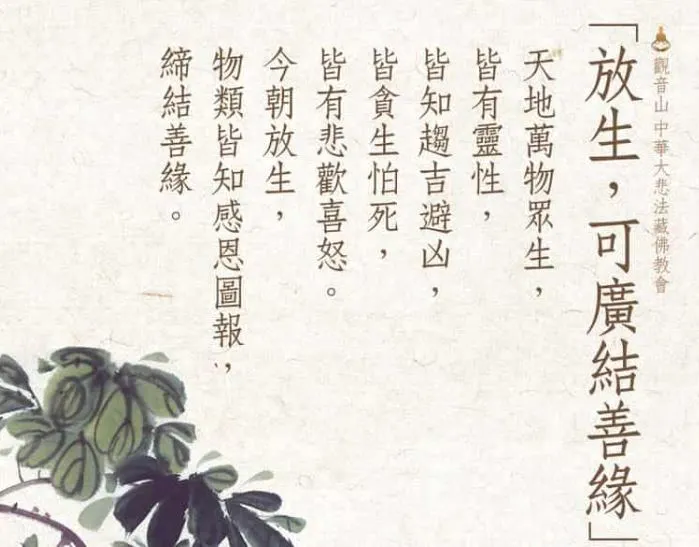 觀音山 中華大悲法藏佛教會
「放生，可廣結善緣」
天地萬物眾生，
皆有靈性，
皆知趨吉避凶，
皆貪生怕死，
皆有悲歡喜怒。
今朝放生，
物類皆知感恩圖報，
締結善緣。